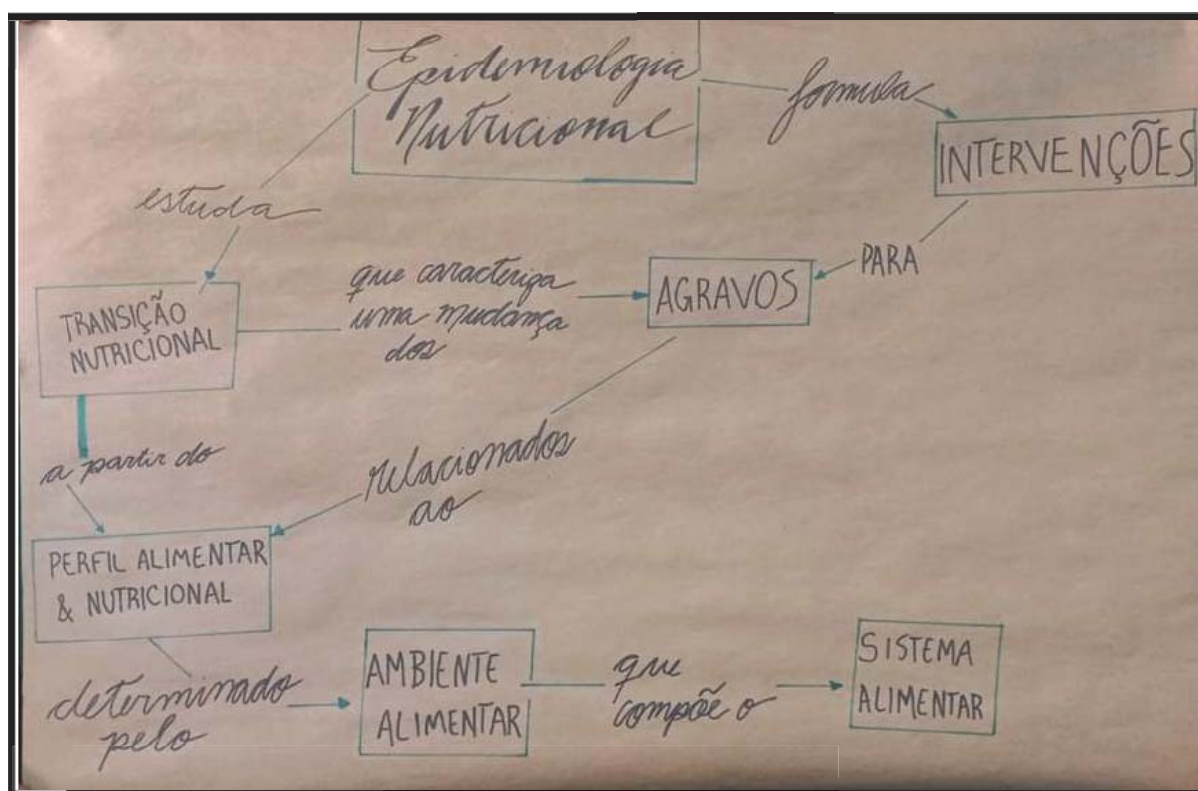 Epidemiologia
Nutricional
formula
INTERVENÇÕES
estuda
PARA
que caracteriza
uma mudança
dos
AGRAVOS
TRANSIÇÃO
NUTRICIONAL
a partir do
relacionados
ao
PERFIL ALIMENTAR
& NUTRICIONAL
determinado
pelo
AMBIENTE
ALIMENTAR
que
compõe o
SISTEMA
ALIMENTAR